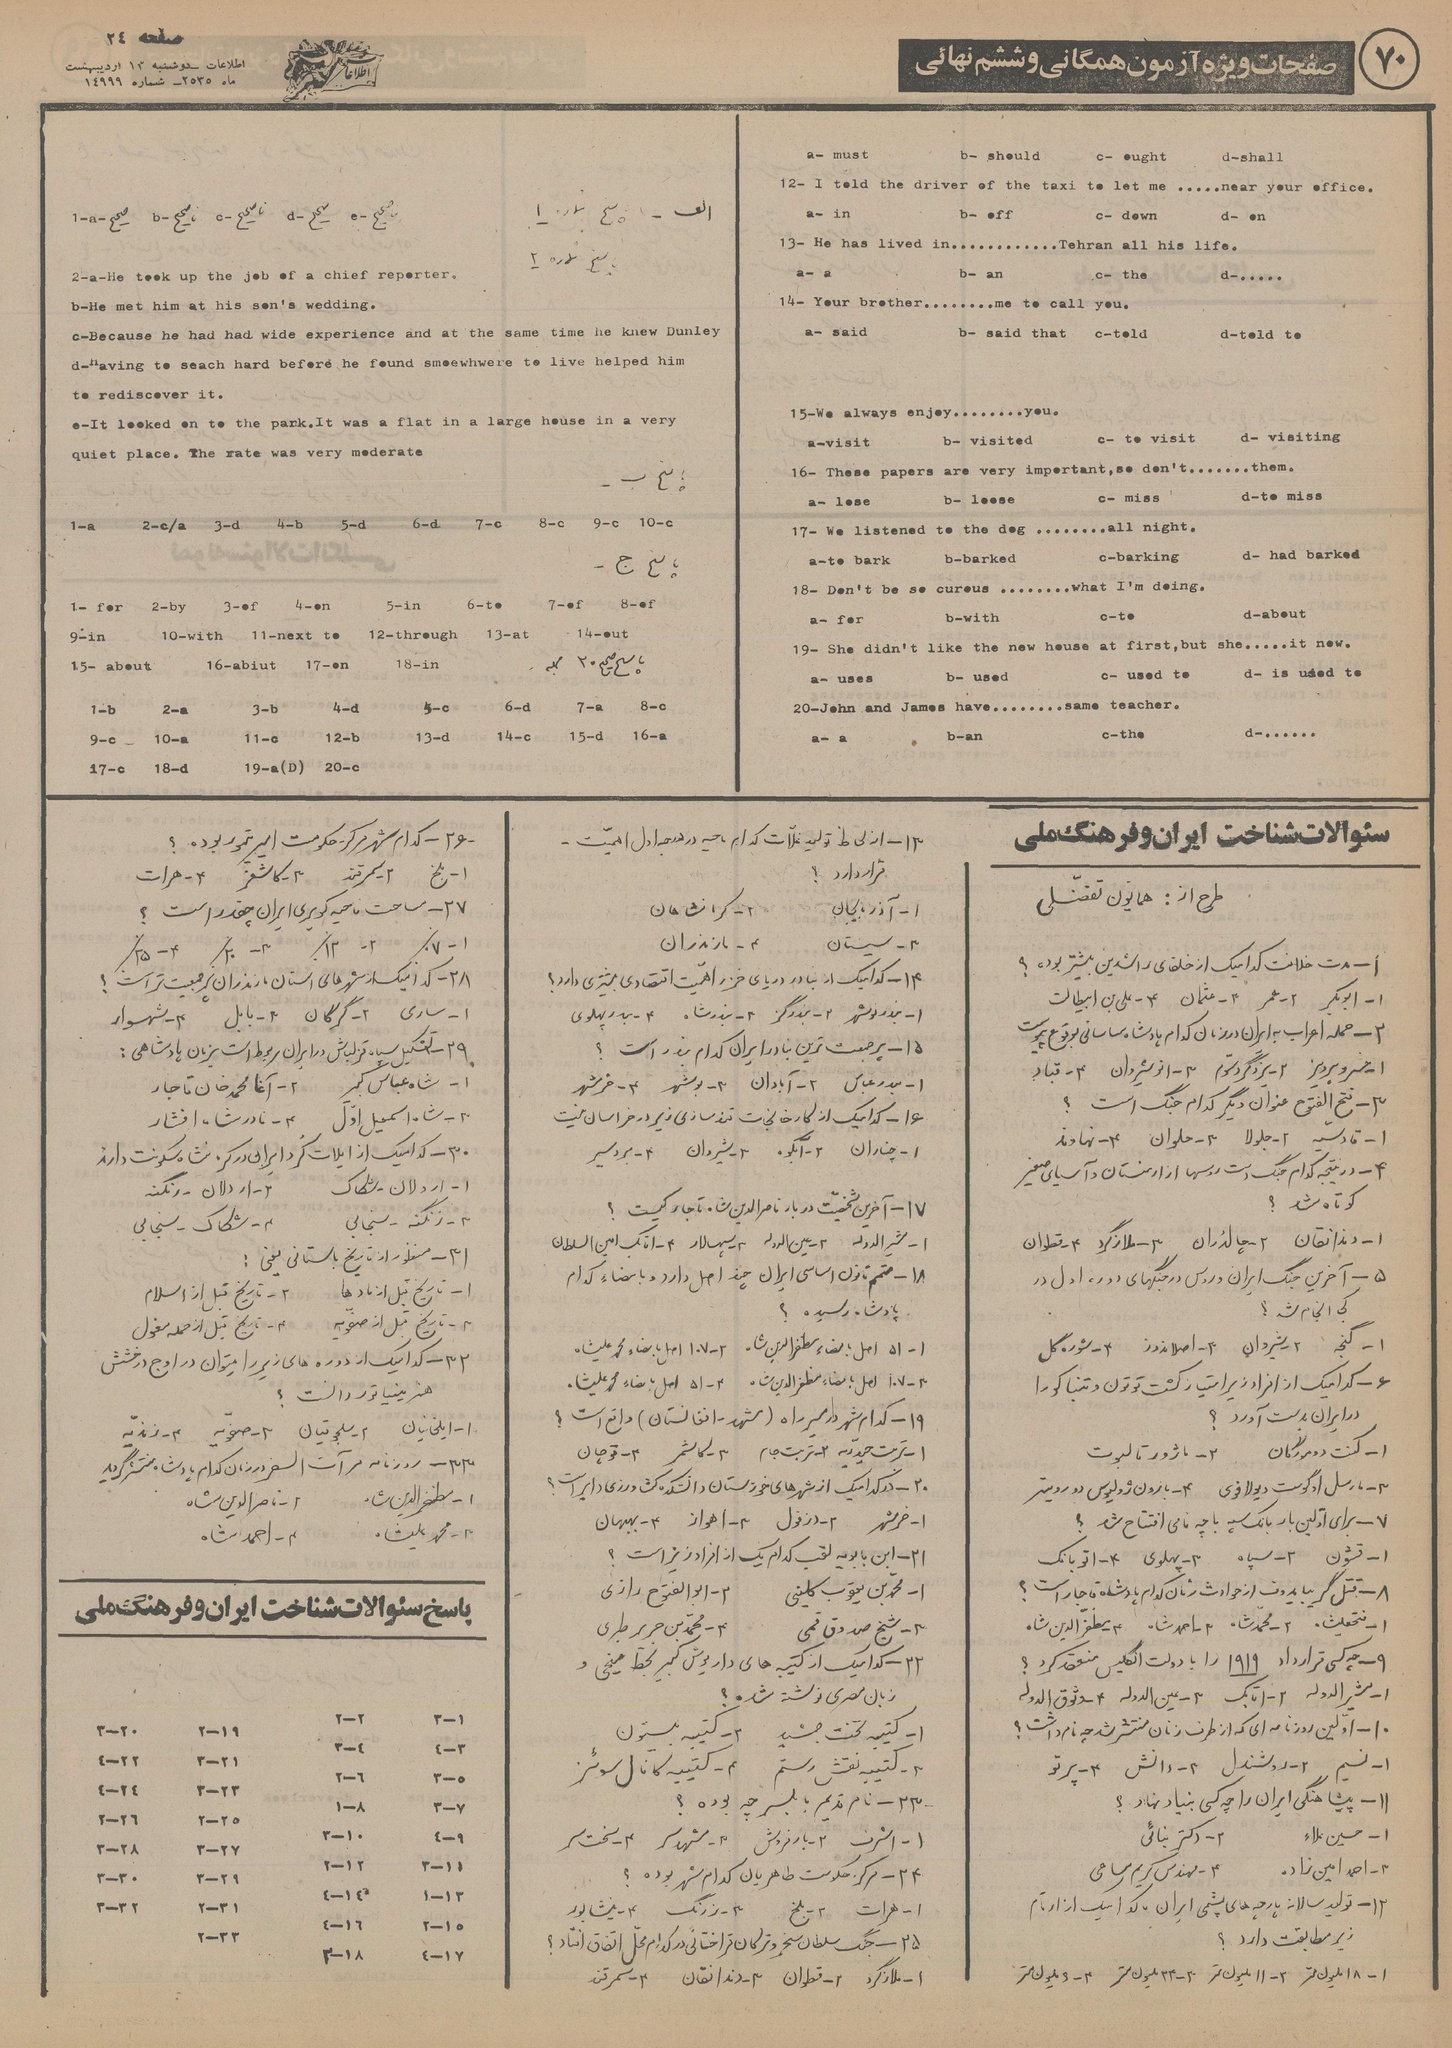 صفحه ۲۴
اطلاعات ـ دوشنبه ۱۳ اردیبهشت
ماه ۲۵۳۵ـ شماره ۱۴۹۹۹
صفحات ویژه آزمون همگانی و ششم نهائی
۷۰
a- must b- should c- ought d-shall
12- I told the driver of the taxi to let me .....near your office.
a- in b- off c- down d- on
13- He has lived in............Tehran all his life.
a- a b- an c- the d-.....
14- Your brother........me to call you.
a- said b- said that c-told d-told to
15-We always enjoy........you.
a-visit b- visited c- to visit d- visiting
16- These papers are very important,so don't.......them.
a- lose b- loose c- miss d-to miss
17- We listened to the dog ........all night.
a-to bark b-barked c-barking d- had barked
18- Don't be so curous ........what I'm doing.
a- for b-with c-to d-about
19- She didn't like the new house at first,but she.....it now.
a- uses b- used c- used to d- is used to
20-John and James have........same teacher.
a- a b-an c-the d-......
الف - پاسخ شماره ۱
1-a-صحیح b-ناصحیح c-ناصحیح d-صحیح e-ناصحیح
پاسخ شماره ۲
2-a-He took up the job of a chief reporter.
b-He met him at his son's wedding.
c-Because he had had wide experience and at the same time he knew Dunley
d-Having to seach hard before he found smoewhwere to live helped him
to rediscover it.
e-It looked on to the park.It was a flat in a large house in a very
quiet place. The rate was very moderate
پاسخ ب -
1-a 2-c/a 3-d 4-b 5-d 6-d 7-c 8-c 9-c 10-c
پاسخ ج -
1- for 2-by 3-of 4-on 5-in 6-to 7-of 8-of
9-in 10-with 11-next to 12-through 13-at 14-out
15- about 16-abiut 17-on 18-in
پاسخ صحیح ۲۰ جمله
1-b 2-a 3-b 4-d 5-c 6-d 7-a 8-c
9-c 10-a 11-c 12-b 13-d 14-c 15-d 16-a
17-c 18-d 19-a(D) 20-c
سئوالات شناخت ایران و فرهنگ ملی
طرح از: همایون تفضّلی
۱- مدت خلافت کدامیک از خلفای راشدین بیشتر بوده؟
۱- ابوبکر ۲- عمر ۳- عثمان ۴- علی بن ابیطالب
۲- حمله اعراب به ایران در زمان کدام پادشاه ساسانی بوقوع پیوست
۱- خسروپرویز ۲- یزدگرد سوم ۳- انوشیروان ۴- قباد
۳- فتح الفتوح عنوان دیگر کدام جنگ است ؟
۱- قادسیّه ۲- جلولا ۳- حلوان ۴- نهاوند
۴- در نتیجه کدام جنگ دست رومیها از ارمنستان و آسیای صغیر
کوتاه شد ؟
۱- دندانقان ۲- چالدران ۳- ملازگرد ۴- قطوان
۵- آخرین جنگ ایران و روس در جنگهای دوره اول در
کجا انجام شد ؟
۱- گنجه ۲- شیروان ۳- اصلاندوز ۴- شوره گل
۶- کدامیک از افراد زیر امتیاز کشت توتون و تنباکو را
در ایران بدست آورد ؟
۱- کنت دومورگان ۲- ماژور تالبوت
۳- مارسل اوگوست دیولافوی ۴- بارون ژولیوس دو رویتر
۷- برای اوّلین بار بانک سپه با چه نامی افتتاح شد ؟
۱- قشون ۲- سپاه ۳- پهلوی ۴- اتوبانک
۸- قتل گریبایدوف از حوادث زمان کدام پادشاه قاجار است؟
۱- فتحعلیشاه ۲- محمّدشاه ۳- احمدشاه ۴- مظفّرالدین شاه
۹- چه کسی قرارداد ۱۹۱۹ را با دولت انگلیس منعقد کرد ؟
۱- مشیرالدوله ۲- اتابک ۳- عین الدوله ۴- وثوق الدوله
۱۰- اوّلین روزنامه ای که از طرف زنان منتشر شد چه نام داشت؟
۱- نسیم ۲- روشندل ۳- دانش ۴- پرتو
۱۱- پیشاهنگی ایران را چه کسی بنیاد نهاد ؟
۱- حسین علاء ۲- دکتر بنائی
۳- احمد امین زاده ۴- مهندس کریم
۱۲- تولید سالانه پارچه های پشمی ایران با کدامیک از ارقام
زیر مطابقت دارد ؟
۱- ۱۸ میلیون متر ۲- ۱۱ میلیون متر ۳- ۲۳ میلیون متر ۴- ۶ میلیون متر
۱۳- از لحاظ تولید غلّات کدام ناحیه در درجه اول اهمیّت -
قرار دارد ؟
۱- آذربایجان ۲- کرمانشاهان
۳- سیستان ۴- مازندران
۱۴- کدامیک از بنادر دریای خزر اهمیّت اقتصادی بیشتری دارد؟
۱- بندر نوشهر ۲- بندرگز ۳- بندرشاه ۴- بندر پهلوی
۱۵- پرجمعیت ترین بنادر ایران کدام بندر است ؟
۱- بندرعباس ۲- آبادان ۳- بوشهر ۴- خرمشهر
۱۶- کدامیک از کارخانجات قندسازی زیر در خراسان نیست
۱- چناران ۲- آبکوه ۳- شیروان ۴- بردسیر
۱۷- آخرین شخصیّت دربار ناصرالدین شاه قاجار کیست ؟
۱- مشیرالدوله ۲- عین الدوله ۳- سپهسالار ۴- اتابک امین السلطان
۱۸- متمم قانون اساسی ایران چند اصل دارد و با مضاء کدام
پادشاه رسیده ؟
۱- ۵۱ اصل بامضاء مظفرالدین شاه ۲- ۱۰۷ اصل بامضاء محمدعلیشاه
۳- ۱۰۷ اصل بامضاء مظفرالدین شاه ۴- ۵۱ اصل بامضاء محمدعلیشاه
۱۹- کدام شهر در مسیر راه (مشهد - افغانستان) واقع است؟
۱- تربت حیدریّه ۲- تربت جام ۳- کاشمر ۴- قوچان
۲۰- در کدامیک از شهرهای خوزستان دانشکده کشاورزی دایر است؟
۱- خرمشهر ۲- دزفول ۳- اهواز ۴- بهبهان
۲۱- ابن بابویه لقب کدام یک از افراد زیر است ؟
۱- محمّد بن یعقوب کلینی ۲- ابوالفتوح رازی
۳- شیخ صدوق قمی ۴- محمّد بن جریر طبری
۲۲- کدامیک از کتیبه های داریوش کبیر بخط میخی و
زبان مصری نوشته شده ؟
۱- کتیبه تخت جمشید ۲- کتیبه بیستون
۳- کتیبه نقش رستم ۴- کتیبه کانال سوئز
۲۳- نام قدیم بابلسر چه بوده ؟
۱- اشرف ۲- بارفروش ۳- مشهدسر ۴- سخت سر
۲۴- مرکز حکومت طاهریان کدام شهر بوده ؟
۱- هرات ۲- بلخ ۳- زرنگ ۴- نیشابور
۲۵- جنگ سلطان سنجر و ترکان قراختائی در کدام محلّ اتفاق افتاد؟
۱- ملازگرد ۲- قطوان ۳- دندانقان ۴- سمرقند
۲۶- کدام شهر مرکز حکومت امیر تیمور بوده ؟
۱- بلخ ۲- سمرقند ۳- کاشغر ۴- هرات
۲۷- مساحت ناحیه کویری ایران چقدر است ؟
۱- ۷٪ ۲- ۱۲٪ ۳- ۲۰٪ ۴- ۲۵٪
۲۸- کدامیک از شهرهای استان مازندران پرجمعیت تر است ؟
۱- ساری ۲- گرگان ۳- بابل ۴- شهسوار
۲۹- تشکیل سپاه قزلباش در ایران مربوط است بزمان پادشاهی :
۱- شاه عباس کبیر ۲- آغا محمدخان قاجار
۳- شاه اسمعیل اوّل ۴- نادرشاه افشار
۳۰- کدامیک از ایلات کُرد ایرانی در کرمانشاه سکونت دارند
۱- اردلان - شکاک ۲- اردلان - زنگنه
۳- زنگنه - سنجابی ۴- شکاک - سنجابی
۳۱- منظور از تاریخ باستانی یعنی :
۱- تاریخ قبل از مادها ۲- تاریخ قبل از اسلام
۳- تاریخ قبل از صفویّه ۴- تاریخ قبل از حمله مغول
۳۲- کدامیک از دوره های زیر را میتوان در اوج درخشش
هنر مینیاتور دانست ؟
۱- ایلخانیان ۲- سلجوقیان ۳- صفویّه ۴- زندیّه
۳۳- روزنامه مرآت السفر در زمان کدام پادشاه منتشر گردید
۱- مظفرالدین شاه ۲- ناصرالدین شاه
۳- محمدعلیشاه ۴- احمدشاه
پاسخ سئوالات شناخت ایران و فرهنگ ملی
۱-۳ ۲-۲ ۱۹-۲ ۲۰-۳
۳-۴ ۴-۳ ۲۱-۳ ۲۲-۴
۵-۳ ۶-۲ ۲۳-۳ ۲۴-۴
۷-۳ ۸-۱ ۲۵-۲ ۲۶-۲
۹-۴ ۱۰-۳ ۲۷-۳ ۲۸-۳
۱۱-۳ ۱۲-۲ ۲۹-۳ ۳۰-۳
۱۳-۱ ۱۴-۴ ۳۱-۲ ۳۲-۳
۱۵-۲ ۱۶-۴ ۳۳-۲
۱۷-۴ ۱۸-۲